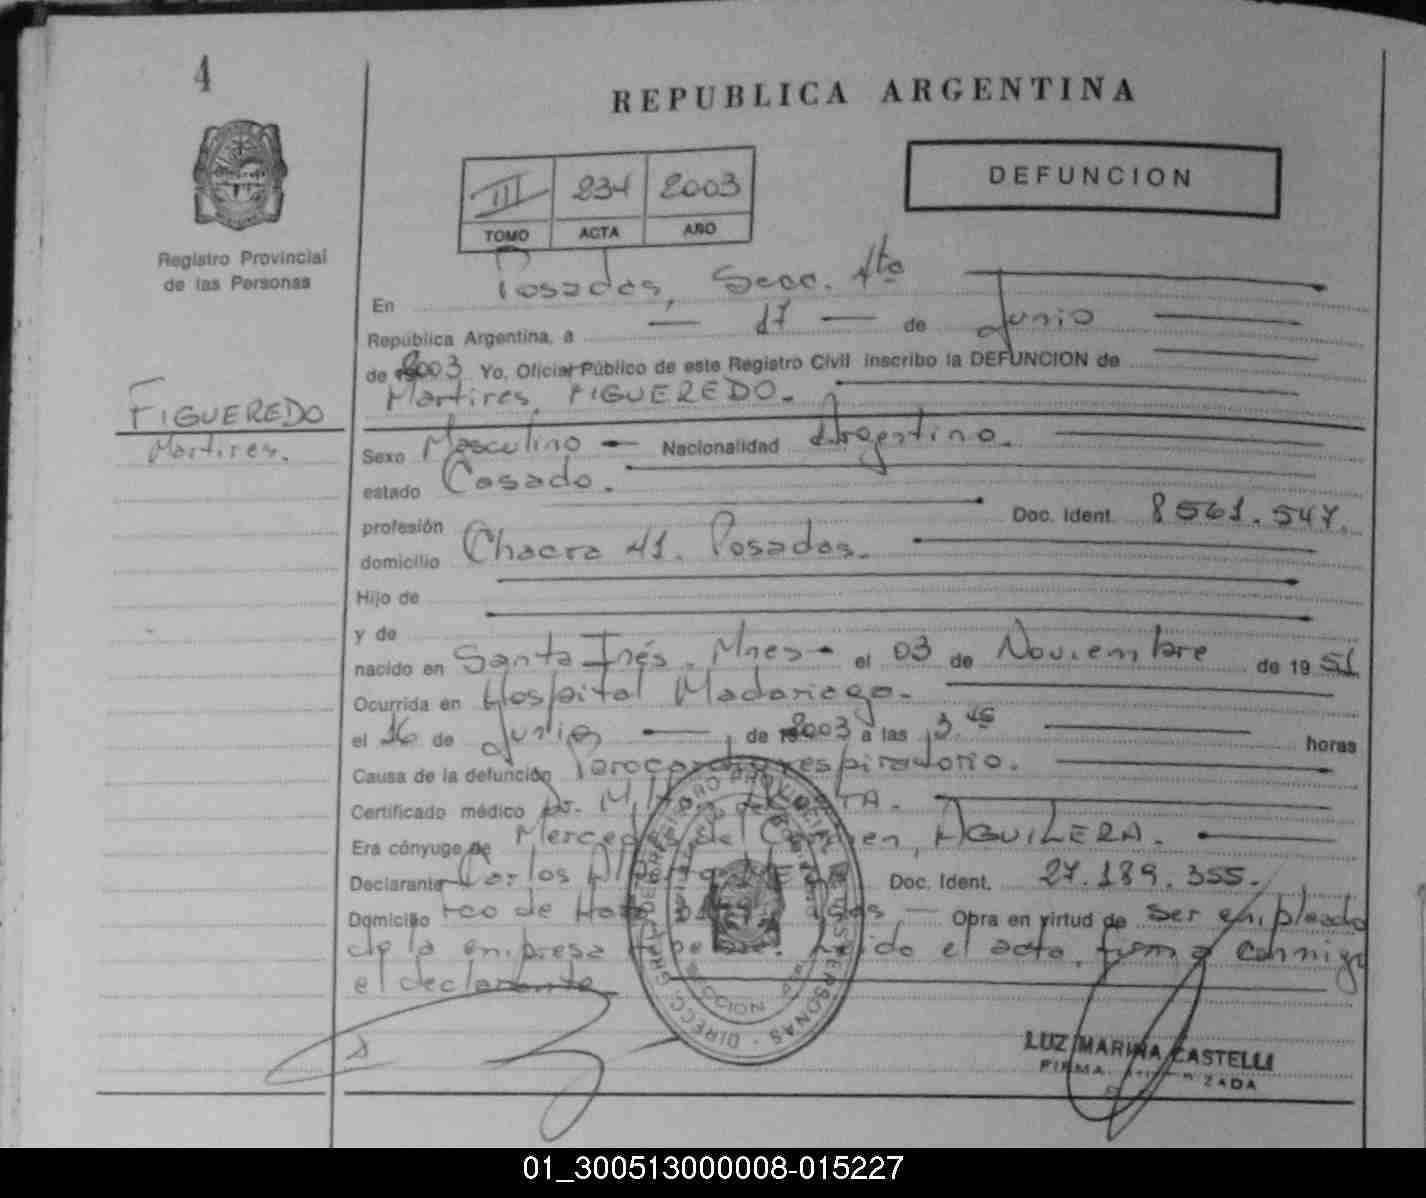 4
REPUBLICA ARGENTINA
DEFUNCION
III 234 2003
TOMO ACTA AÑO
Registro Provincial
de las Personas
En Posadas, Secc. 1ta
República Argentina, a — 17 — de Junio
de 2003 Yo, Oficial Público de este Registro Civil inscribo la DEFUNCION de
Martires FIGUEREDO.
FIGUEREDO
Martires.
Sexo Masculino — Nacionalidad Argentino.
estado Casado.
profesión Doc. Ident. 8561.547.
domicilio Chacra 41. Posadas.
Hijo de
y de
nacido en Santa Inés. Mnes - el 03 de Noviembre de 1951
Ocurrida en Hospital Madariaga.
el 16 de Junio — de 2003 a las 3.45 horas
Causa de la defunción Parocardiorespiratorio.
Certificado médico Dr.
Era cónyuge de Mercedes del Carmen, AGUILERA.
Declarante Carlos Doc. Ident. 27.189.355.
Domicilio Obra en virtud de ser empleado
de la empresa el acta, firma conmigo
el declarante
DIRECC. GRAL. DEL REGISTRO PROVINCIAL DE LAS PERSONAS
LUZ MARINA CASTELLI
FIRMA AUTORIZADA
01_300513000008-015227